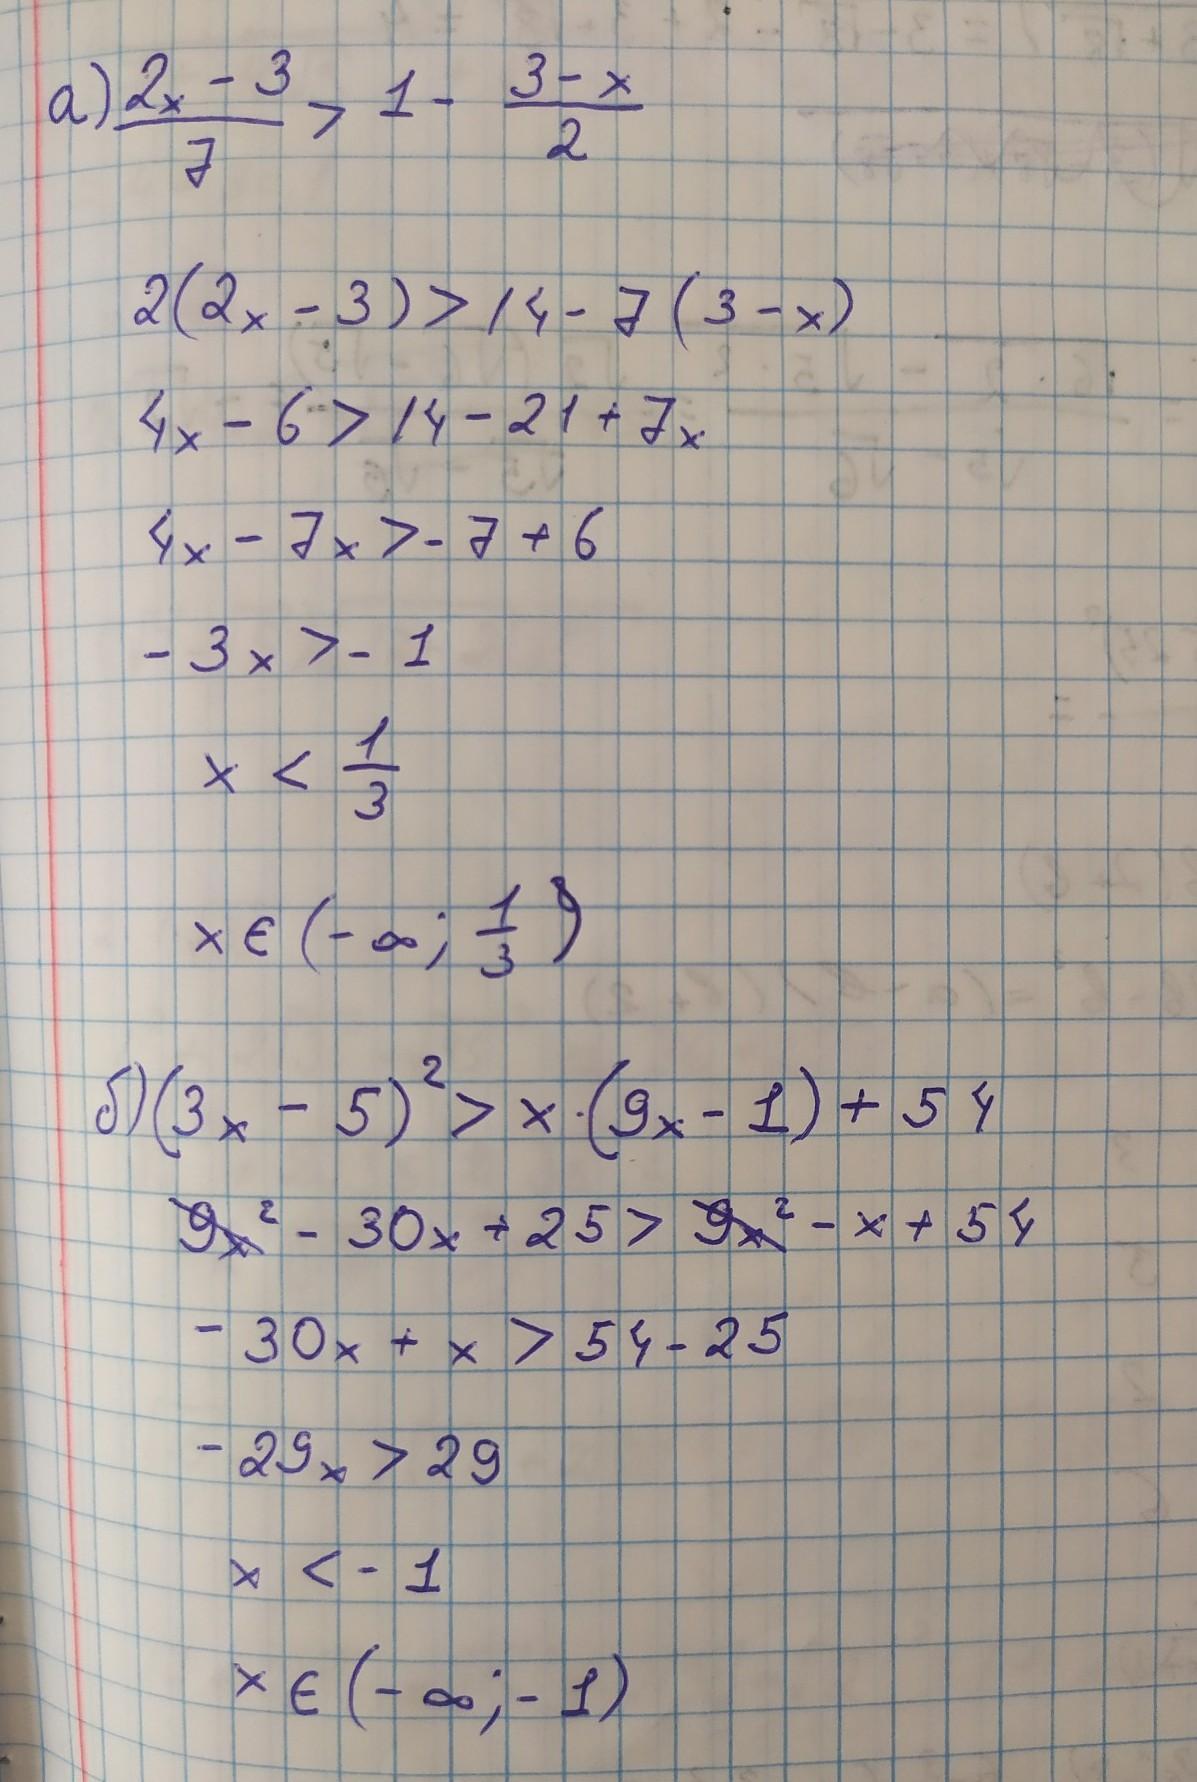 а) (2x - 3)/7 > 1 - (3 - x)/2
2(2x - 3) > 14 - 7(3 - x)
4x - 6 > 14 - 21 + 7x
4x - 7x > - 7 + 6
- 3x > - 1
x < 1/3
x ∈ (- ∞; 1/3)
б) (3x - 5)² > x · (9x - 1) + 54
9x² - 30x + 25 > 9x² - x + 54
- 30x + x > 54 - 25
- 29x > 29
x < - 1
x ∈ (- ∞; - 1)